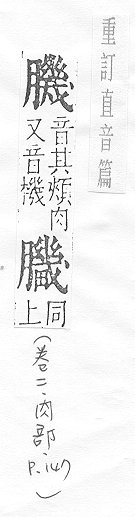 重訂直音篇
𦠄
音其頰肉
又音機
同
上
(卷二·肉部, P.147)